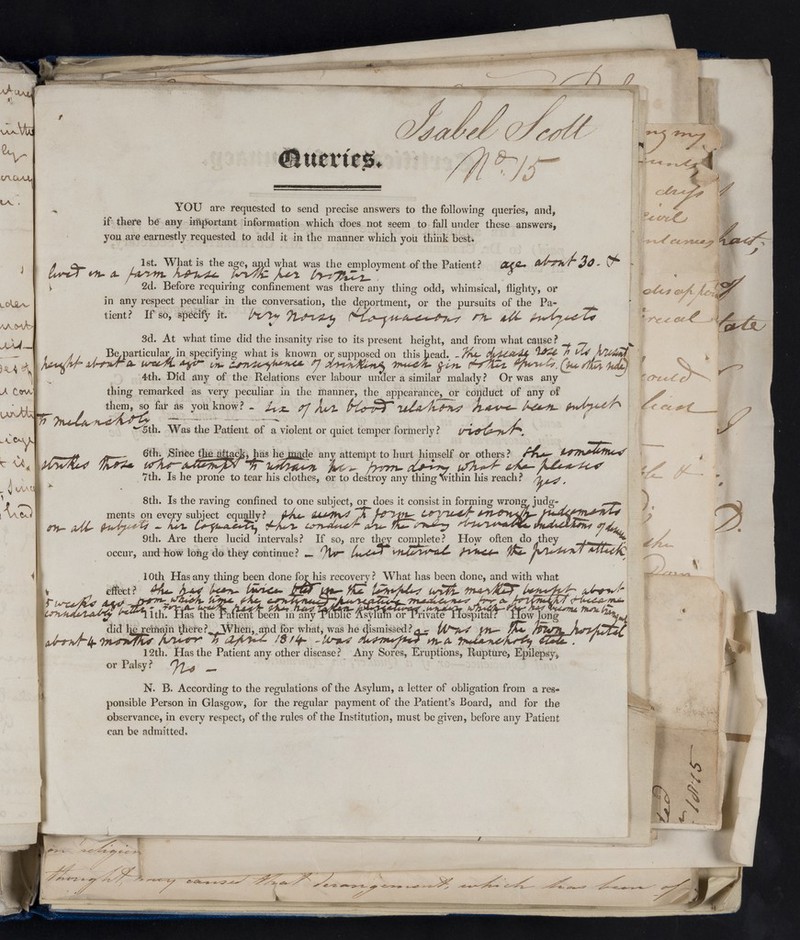 Isabel Scott
No. 15
Queries.
YOU are requested to send precise answers to the following queries, and,
if there be any important information which does not seem to fall under these answers,
you are earnestly requested to add it in the manner which you think best.
1st. What is the age, and what was the employment of the Patient? age about 30. &
lived in a farm house with her brother.
2d. Before requiring confinement was there any thing odd, whimsical, flighty, or
in any respect peculiar in the conversation, the deportment, or the pursuits of the Pa-
tient? If so, specify it. very noisy & loquacious on all subjects
3d. At what time did the insanity rise to its present height, and from what cause?
Be particular in specifying what is known or supposed on this head. - The disease rose to its present
height about a week ago in consequence of drinking much gin & other spirits. (see other side)
4th. Did any of the Relations ever labour under a similar malady? Or was any
thing remarked as very peculiar in the manner, the appearance, or conduct of any of
them, so far as you know? - six of her blood relations have been subject
to melancholy
5th. Was the Patient of a violent or quiet temper formerly? violent.
6th. Since the attack, has he made any attempt to hurt himself or others? She sometimes
strikes those who attempt to restrain her from doing what she pleases
7th. Is he prone to tear his clothes, or to destroy any thing within his reach? yes.
8th. Is the raving confined to one subject, or does it consist in forming wrong judg-
ments on every subject equally? she seems to form correct enough judgements
on all subjects - her loquacity & her conduct are the only observable indications of
9th. Are there lucid intervals? If so, are they complete? How often do they
occur, and how long do they continue? - No lucid interval since the present attack
10th Has any thing been done for his recovery? What has been done, and with what
effect? She has been twice bled in the temples with marked benefit about
5 weeks ago from which time she continued purgative medicines for a fortnight & became
considerably better - For a week past she has taken under which she has become more
11th. Has the Patient been in any Public Asylum or Private Hospital? How long
did he remain there? When, and for what, was he dismissed? - Was in the town hospital
about 4 months prior to April 1814 - was dismissed in a melancholy state.
12th. Has the Patient any other disease? Any Sores, Eruptions, Rupture, Epilepsy,
or Palsy? No -
N. B. According to the regulations of the Asylum, a letter of obligation from a res-
ponsible Person in Glasgow, for the regular payment of the Patient's Board, and for the
observance, in every respect, of the rules of the Institution, must be given, before any Patient
can be admitted.
1815
thought, may cause that derangement, which has been